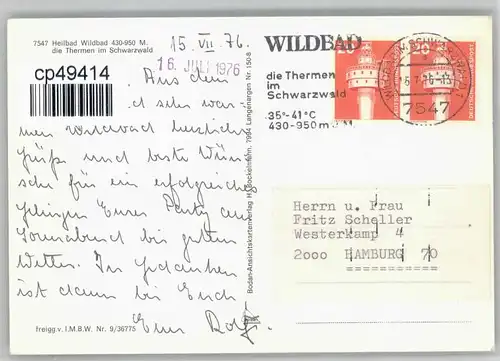 7547 Heilbad Wildbad 430-950 M.
die Thermen im Schwarzwald
cp49414
15. VII. 76.
16. JULI 1976
Aus dem
sehr war-
men Wildbad herzliche
Grüße und beste Wün-
sche für ein erfolgreiches
Gelingen Eurer Party am
Sonnabend bei gutem
Wetter. In Gedanken
ist dann bei Euch
Euer Rolf.
freigg. v. I.M.B.W. Nr. 9/36775
Bodan-Ansichtskartenverlag H. Bockelmann, 7994 Langenargen Nr. 150-8
WILDBAD
die Thermen
im
Schwarzwald
35°-41°C
430-950m ü.M.
20
20
7547
Herrn u. Frau
Fritz Scheller
Westerkamp 4
2000 HAMBURG 70
============